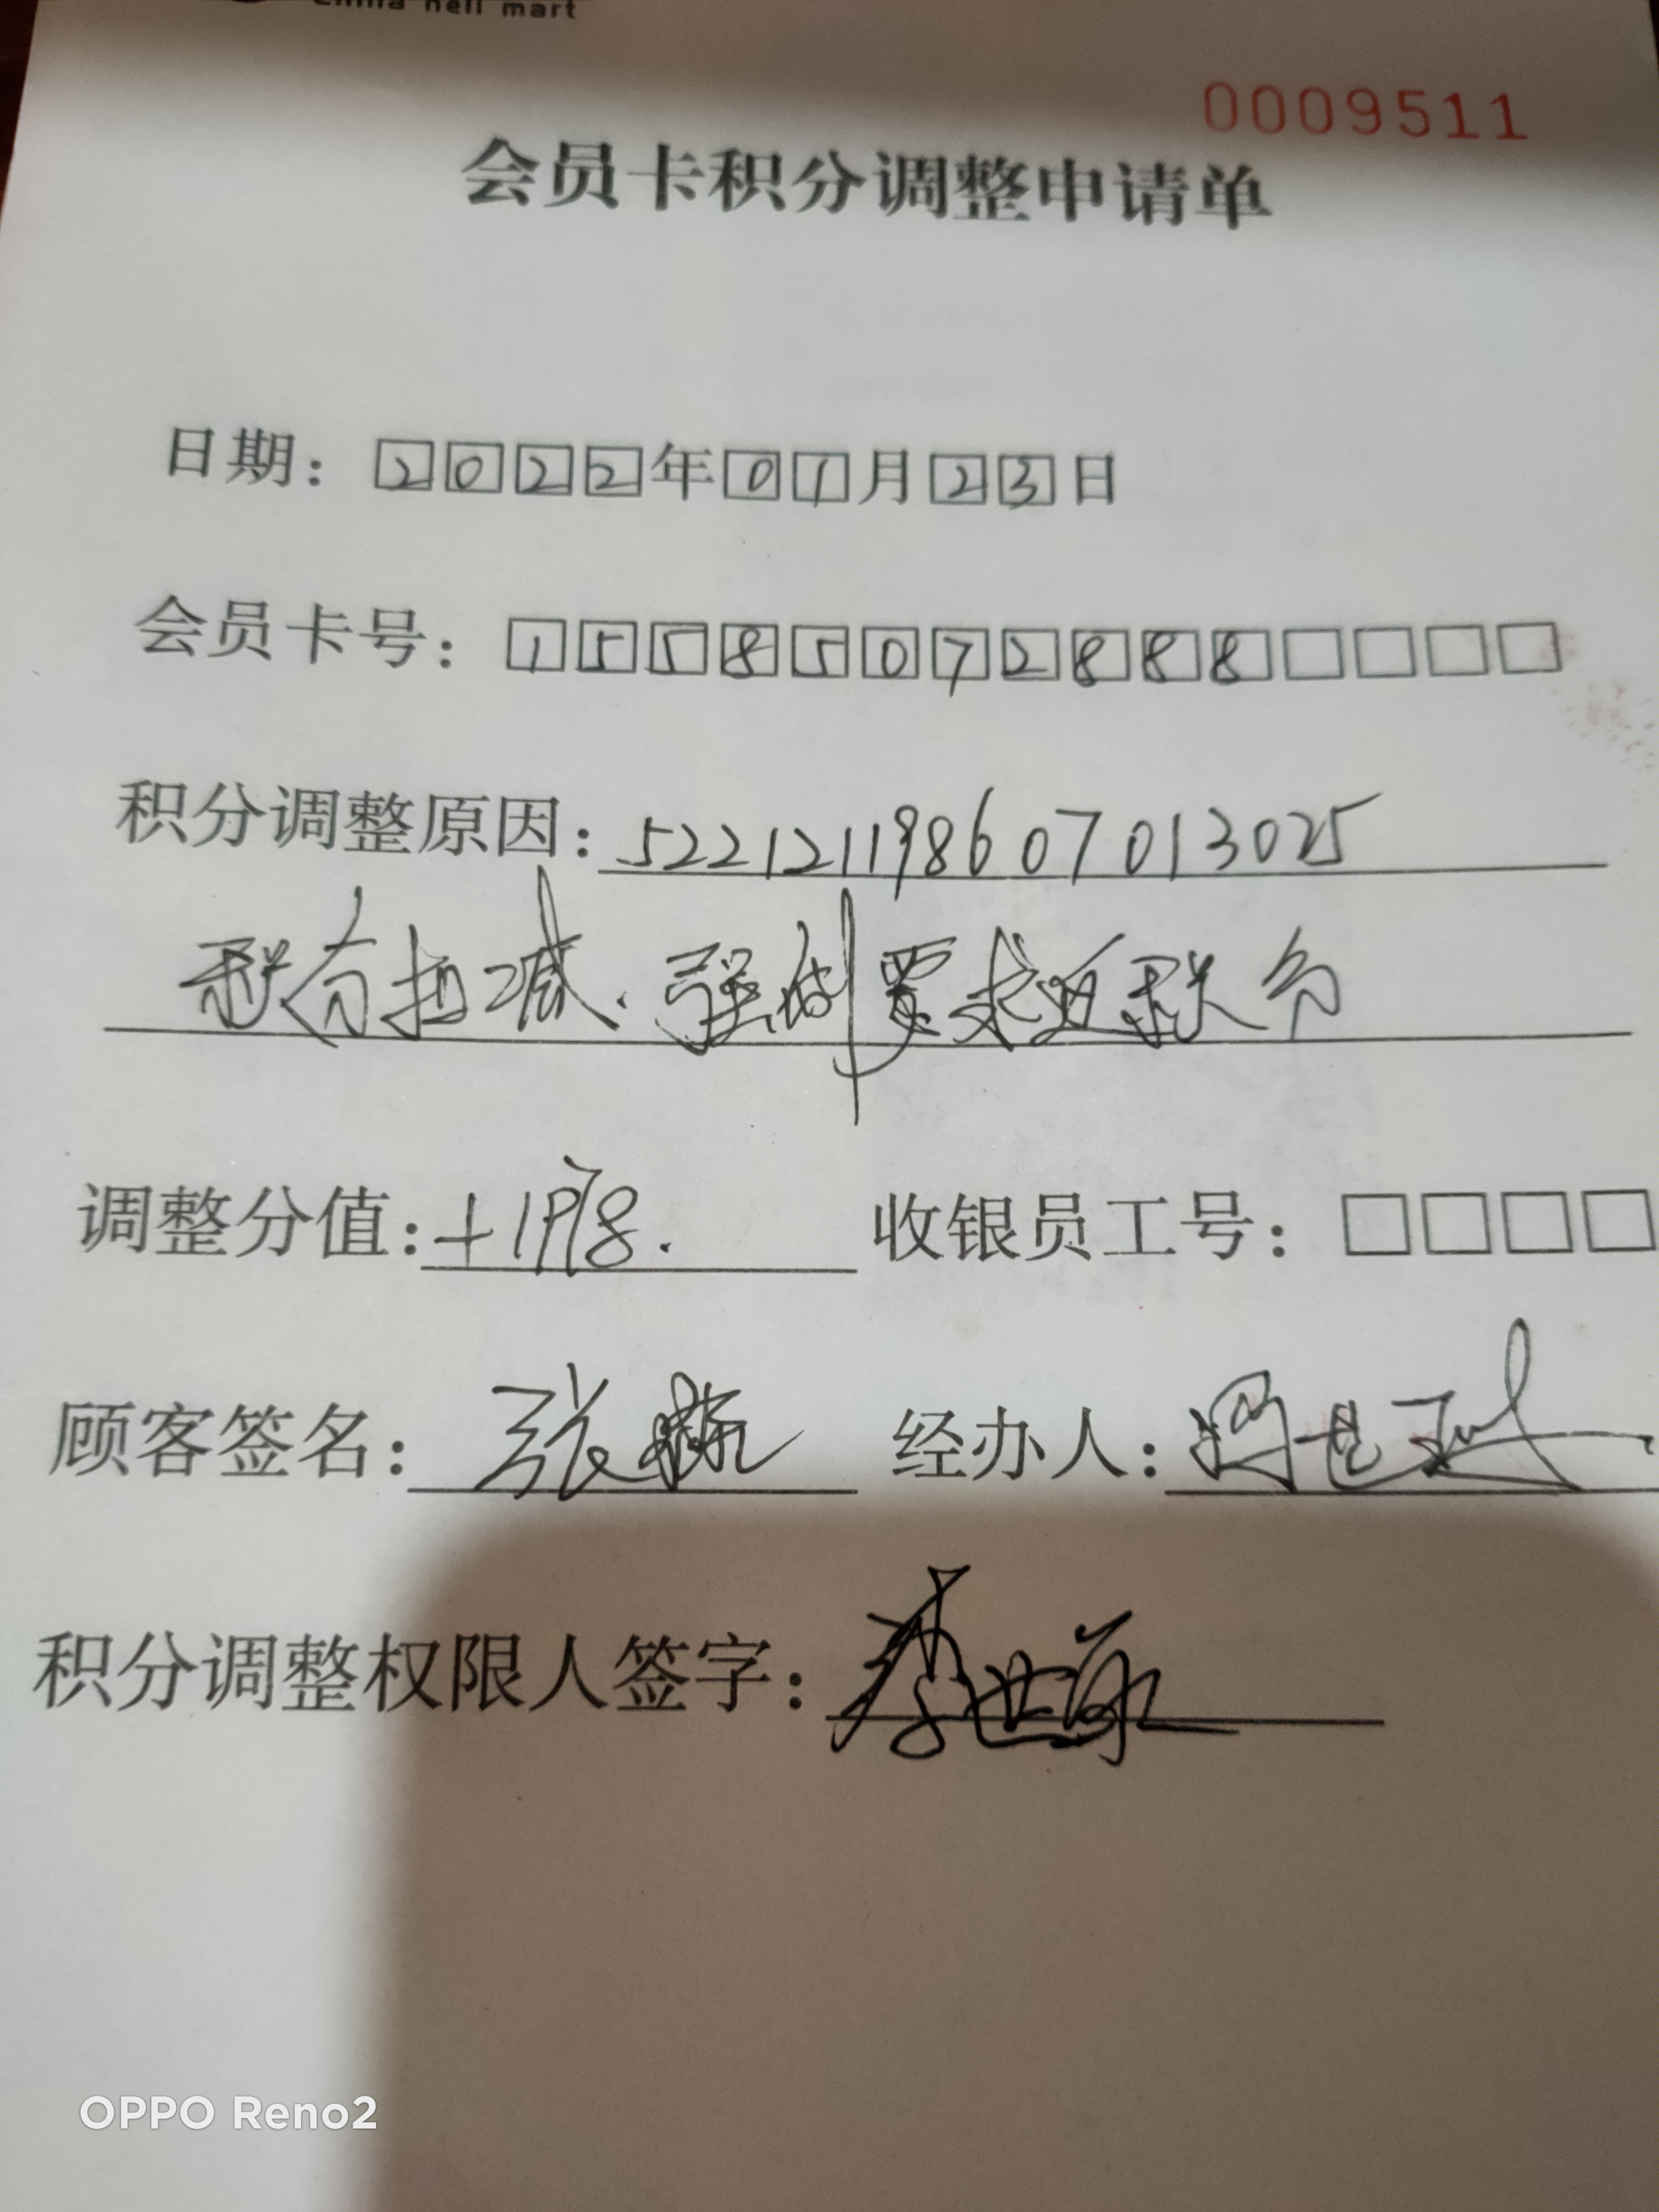 China heli mart
0009511
会员卡积分调整申请单
日期：2022年01月23日
会员卡号：15585072888
积分调整原因：522121198607013025
积分扣减.强制要求返积分
调整分值：+1978. 收银员工号：
顾客签名：张 经办人：
积分调整权限人签字：李世
OPPO Reno2